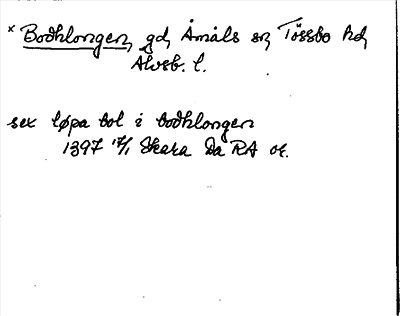 × Bodhlongen, gd, Åmåls sn, Tössbo hd,
Älvsb. l.
sex løpa bol i bodhlongen
1397 17/1 Skara Da RA or.